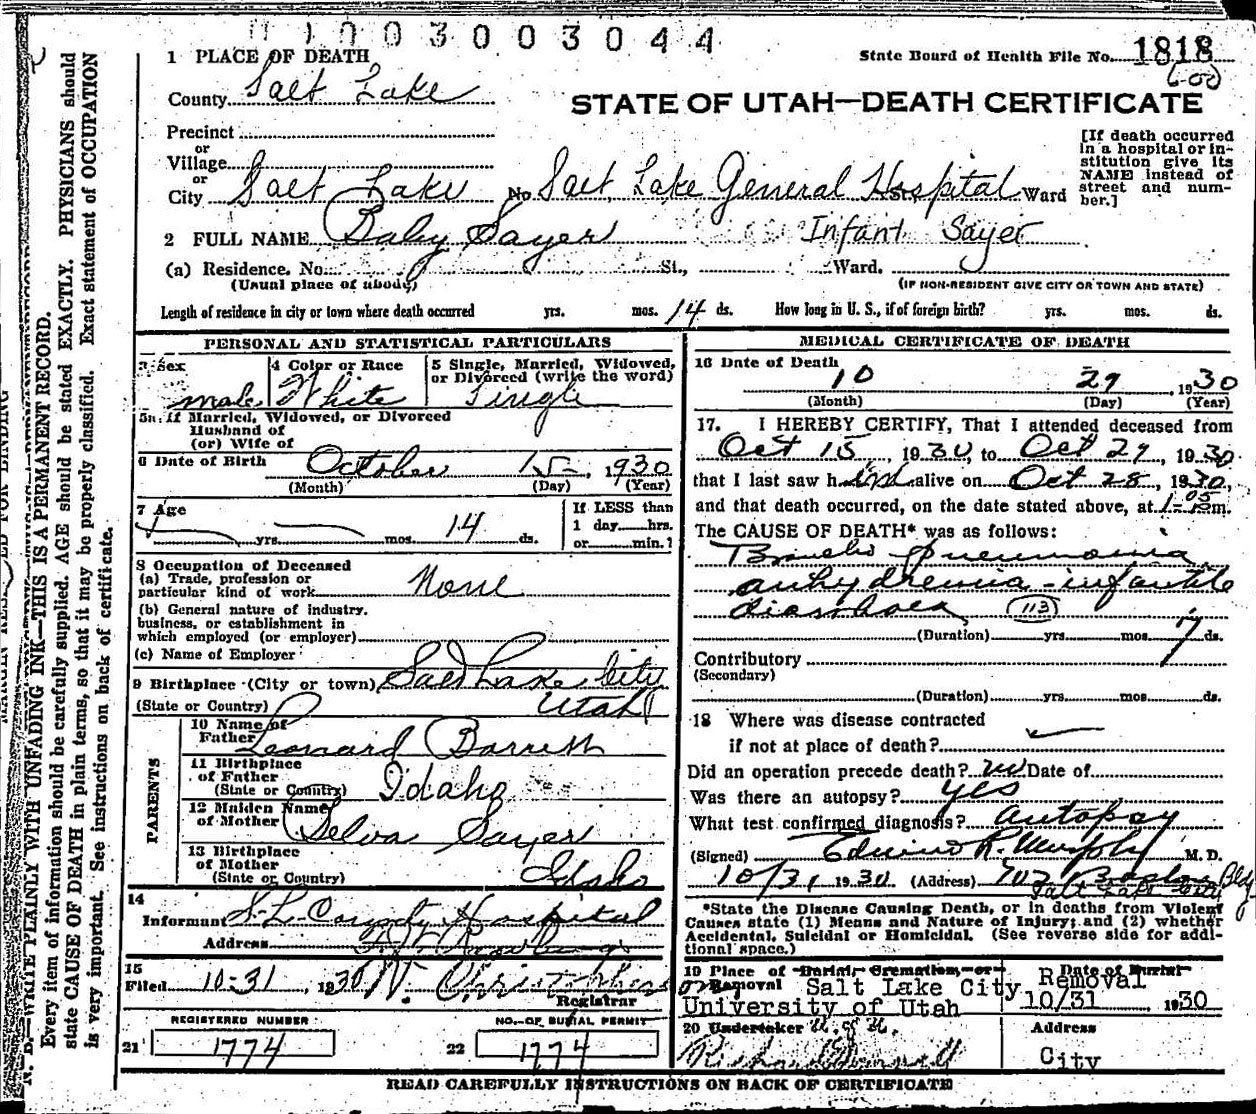 1003003044
1 PLACE OF DEATH
State Board of Health File No. 1818
600
County Salt Lake
STATE OF UTAH—DEATH CERTIFICATE
Precinct
or
Village
or
City Salt Lake No. Salt Lake General Hospital St. Ward
[If death occurred in a hospital or institution give its NAME instead of street and number.]
2 FULL NAME Baby Sayer Infant Sayer
(a) Residence. No. St., Ward.
(Usual place of abode) (IF NON-RESIDENT GIVE CITY OR TOWN AND STATE)
Length of residence in city or town where death occurred yrs. mos. 14 ds. How long in U. S., if of foreign birth? yrs. mos. ds.
PERSONAL AND STATISTICAL PARTICULARS
3 Sex male
4 Color or Race White
5 Single, Married, Widowed, or Divorced (write the word) Single
5a. If Married, Widowed, or Divorced
Husband of
(or) Wife of
6 Date of Birth October 15 1930
(Month) (Day) (Year)
7 Age yrs. mos. 14 ds.
If LESS than
1 day hrs.
or min.?
8 Occupation of Deceased
(a) Trade, profession or
particular kind of work None
(b) General nature of industry.
business, or establishment in
which employed (or employer)
(c) Name of Employer
9 Birthplace (City or town) Salt Lake City
(State or Country) Utah
PARENTS
10 Name of Father Leonard Barrett
11 Birthplace of Father (State or Country) Idaho
12 Maiden Name of Mother Selva Sayer
13 Birthplace of Mother (State or Country) Idaho
14
Informant S. L. County Hospital
Address
15
Filed 10-31 1930 W. Christopherson
Registrar
REGISTERED NUMBER
21 1774
NO. OF BURIAL PERMIT
22 1774
MEDICAL CERTIFICATE OF DEATH
16 Date of Death
10 29, 1930
(Month) (Day) (Year)
17. I HEREBY CERTIFY, That I attended deceased from
Oct 15, 1930, to Oct 29, 1930
that I last saw him alive on Oct 28, 1930,
and that death occurred, on the date stated above, at 1-05 m.
The CAUSE OF DEATH* was as follows:
Broncho pneumonia
anhydremia - infantile
diarrhoea (113)
(Duration) yrs. mos. 7 ds.
Contributory
(Secondary)
(Duration) yrs. mos. ds.
18 Where was disease contracted
if not at place of death?
Did an operation precede death? no Date of
Was there an autopsy? yes
What test confirmed diagnosis? autopsy
(Signed) Edwin R. Murphy M. D.
10/31 1930 (Address) 702 Boston Bldg
Salt Lake City
*State the Disease Causing Death, or in deaths from Violent
Causes state (1) Means and Nature of Injury; and (2) whether
Accidental, Suicidal or Homicidal. (See reverse side for additional space.)
19 Place of Burial, Cremation, or
Removal Salt Lake City
University of Utah
Date of Burial
Removal
10/31 1930
20 Undertaker U. of U.
Address
City
READ CAREFULLY INSTRUCTIONS ON BACK OF CERTIFICATE
N. B.—WRITE PLAINLY WITH UNFADING INK—THIS IS A PERMANENT RECORD.
Every item of information should be carefully supplied. AGE should be stated EXACTLY. PHYSICIANS should
state CAUSE OF DEATH in plain terms, so that it may be properly classified. Exact statement of OCCUPATION
is very important. See instructions on back of certificate.